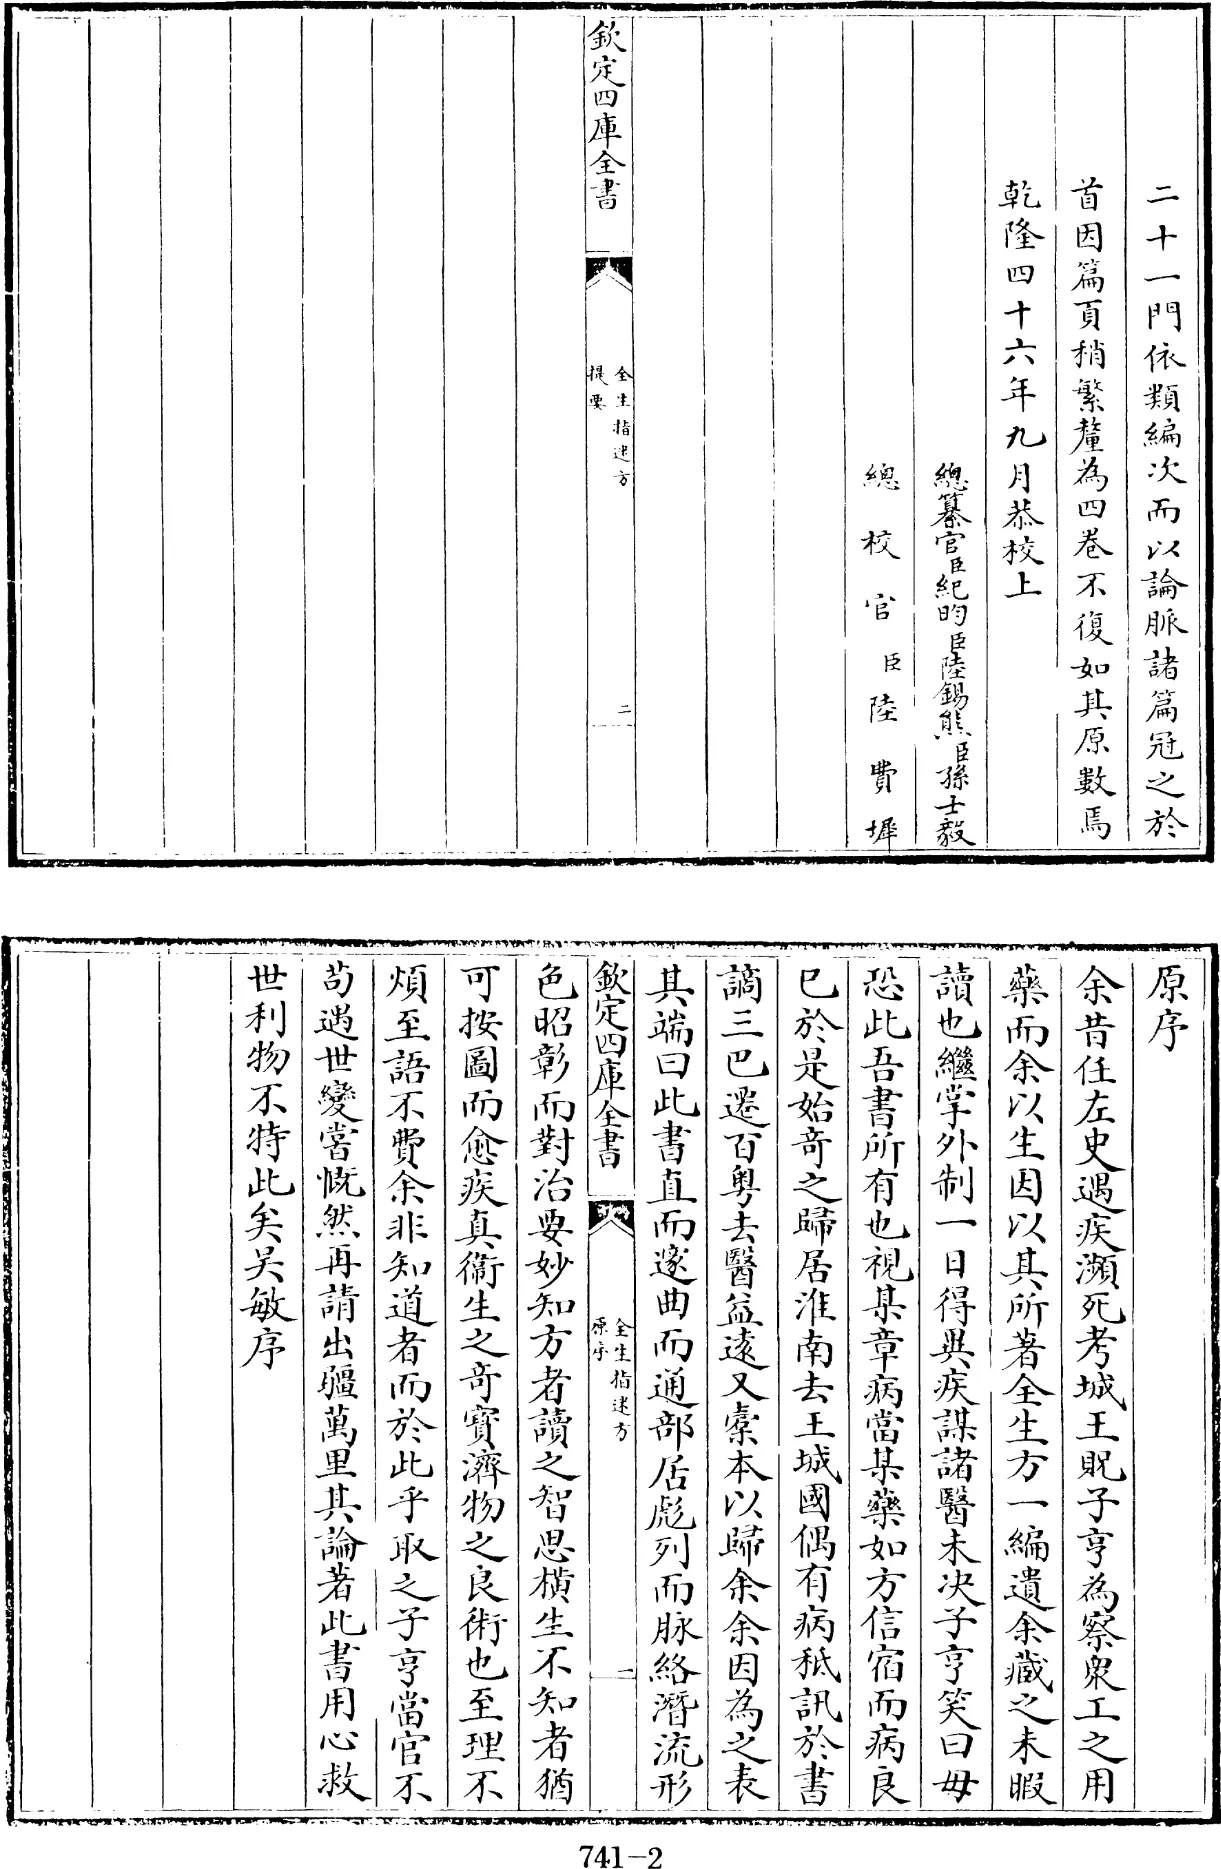 二十一門依類編次而以論脈諸篇冠之於
首因篇頁稍繁釐為四卷不復如其原數焉
乾隆四十六年九月恭校上
總纂官臣紀昀臣陸錫熊臣孫士毅
總校官臣陸費墀
欽定四庫全書
全生指迷方
提要
二
原序
余昔任左史遇疾瀕死考城王貺子亨為察衆工之用
藥而余以生因以其所著全生方一編遺余藏之未暇
讀也繼掌外制一日得異疾謀諸醫未決子亨笑曰毋
恐此吾書所有也視某章病當某藥如方信宿而病良
已於是始奇之歸居淮南去王城國偶有病秪訊於書
謫三巴遷百粵去醫益遠又橐本以歸余余因為之表
其端曰此書直而邃曲而通部居彪列而脉絡潛流形
欽定四庫全書
全生指迷方
原序
一
色昭彰而對治要妙知方者讀之智思橫生不知者猶
可按圖而愈疾真衞生之奇寳濟物之良術也至理不
煩至語不費余非知道者而於此乎取之子亨當官不
苟遇世變嘗慨然再請出疆萬里其論著此書用心救
世利物不特此矣吴敏序
741-2